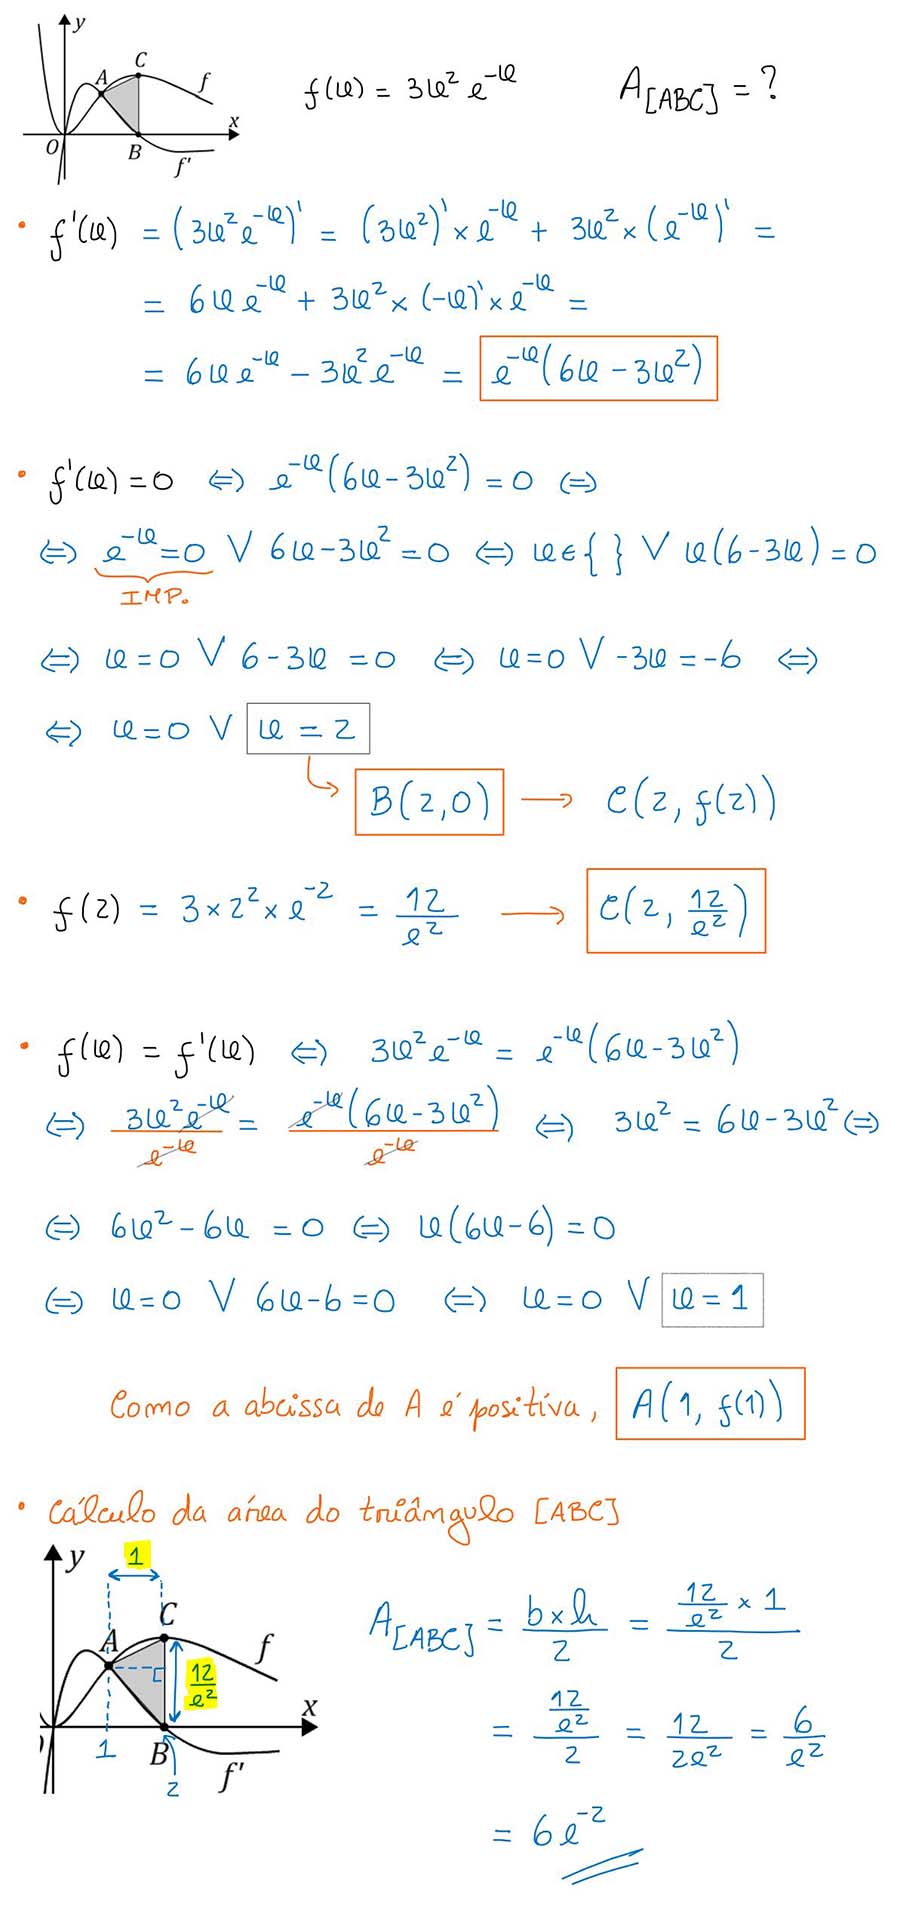 y
C
A
f
x
O
B
f'
f(x) = 3x² e^{-x}
A_{[ABC]} = ?
• f'(x) = (3x² e^{-x})' = (3x²)' × e^{-x} + 3x² × (e^{-x})' =
= 6x e^{-x} + 3x² × (-x)' × e^{-x} =
= 6x e^{-x} - 3x² e^{-x} = e^{-x}(6x - 3x²)
• f'(x) = 0 ⇔ e^{-x}(6x - 3x²) = 0 ⇔
⇔ e^{-x} = 0 ∨ 6x - 3x² = 0 ⇔ x ∈ { } ∨ x(6 - 3x) = 0
IMP.
⇔ x = 0 ∨ 6 - 3x = 0 ⇔ x = 0 ∨ -3x = -6 ⇔
⇔ x = 0 ∨ x = 2
B(2, 0) → C(2, f(2))
• f(2) = 3 × 2² × e^{-2} = 12/e² → C(2, 12/e²)
• f(x) = f'(x) ⇔ 3x² e^{-x} = e^{-x}(6x - 3x²)
⇔ 3x² e^{-x}/e^{-x} = e^{-x}(6x - 3x²)/e^{-x} ⇔ 3x² = 6x - 3x² ⇔
⇔ 6x² - 6x = 0 ⇔ x(6x - 6) = 0
⇔ x = 0 ∨ 6x - 6 = 0 ⇔ x = 0 ∨ x = 1
Como a abcissa de A é positiva, A(1, f(1))
• Cálculo da área do triângulo [ABC]
y
1
C
A
f
12/e²
x
1
B
2
f'
A_{[ABC]} = b × h/2 = (12/e² × 1)/2
= (12/e²)/2 = 12/2e² = 6/e²
= 6e^{-2}